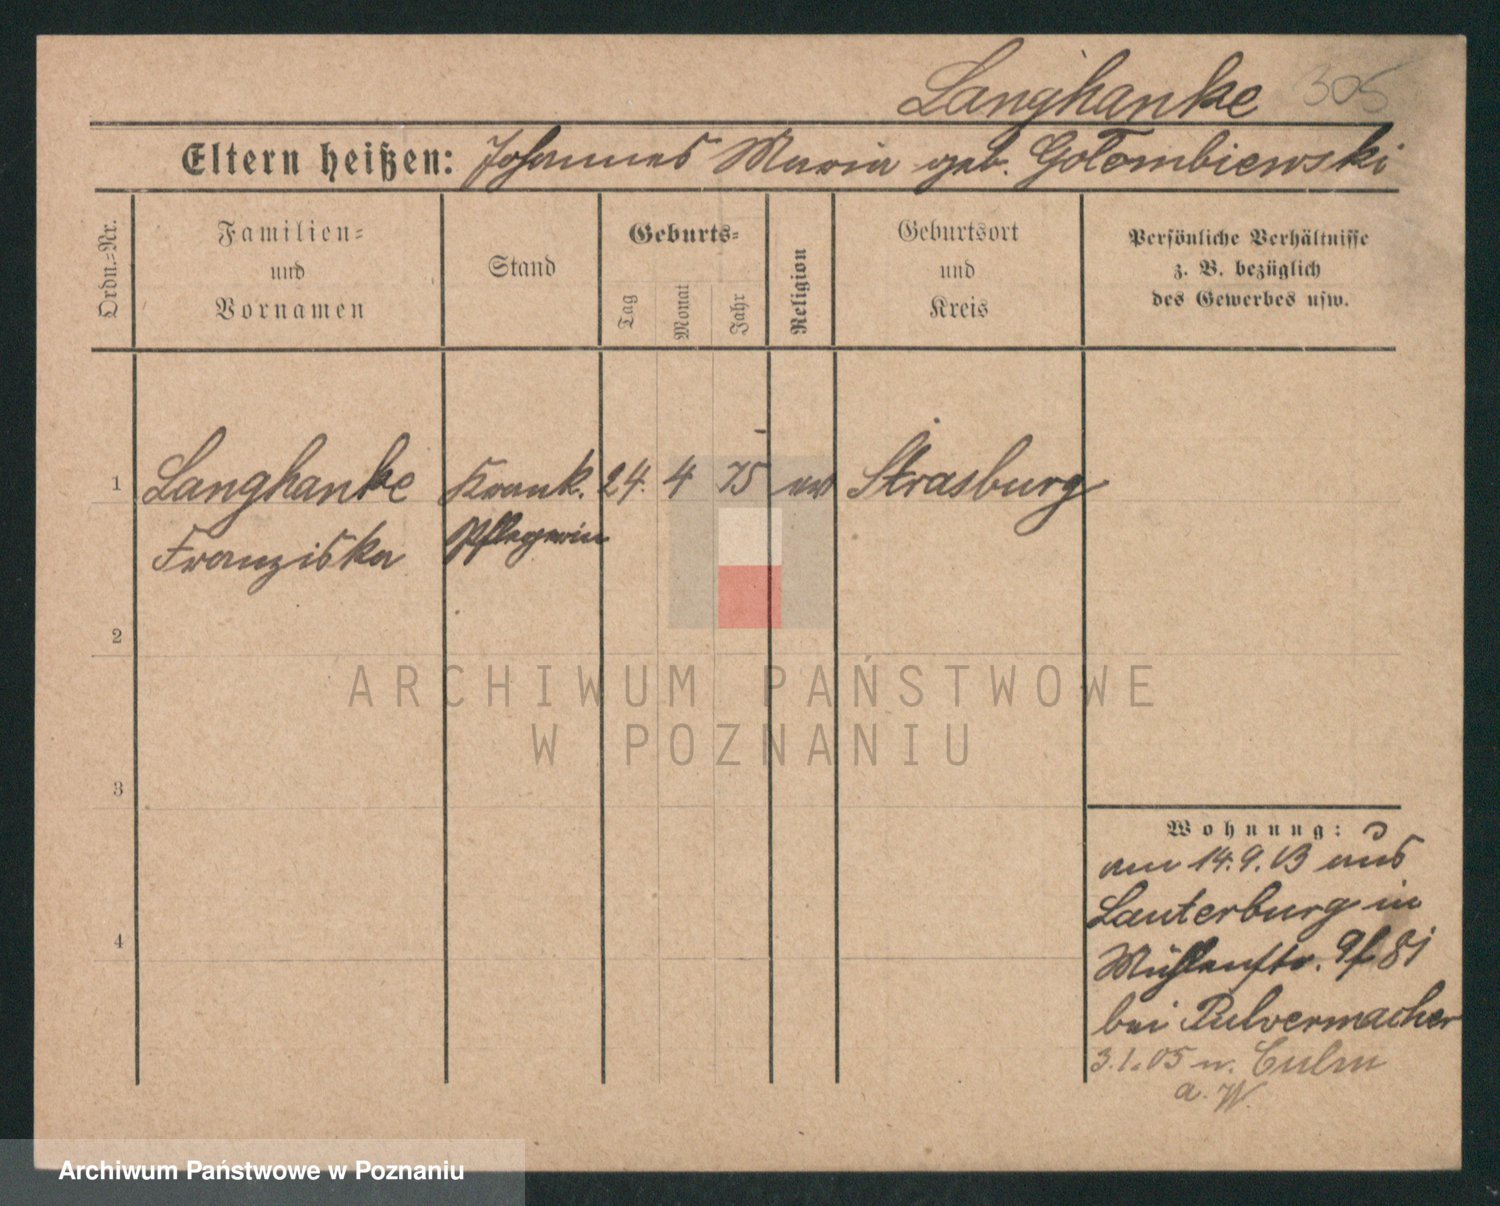 Langhanke 305
Eltern heißen: Johannes Maria geb. Golombiewski
Ordn.-Nr.
Familien-
und
Vornamen
Stand
Geburts-
Tag
Monat
Jahr
Religion
Geburtsort
und
Kreis
Persönliche Verhältnisse
z. B. bezüglich
des Gewerbes usw.
1 Langhanke Krank. 24. 4 75 ev Strasburg
Franziska Pflegerin
2
ARCHIWUM PAŃSTWOWE
W POZNANIU
3
Wohnung:
am 14.9.03 aus
Lauterburg in
Mühlenstr. 81
bei Pulvermacher
3.1.05 n. Culm
a. W.
4
Archiwum Państwowe w Poznaniu